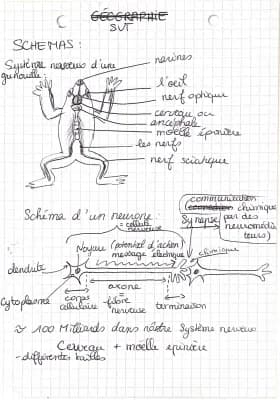 GÉOGRAPHIE
SVT
SCHEMAS :
Système nerveux d'une
grenouille :
narines
l'oeil
nerf optique
cerveau ou
encéphale
moëlle épinière
les nerfs
nerf sciatique
communication
chimique
par des
neuromédia
teurs)
Synapse
Schéma d'un neurone :
= cellule
nerveuse
Noyau (potentiel d'action
message électrique)
chimique
dendrite
axone
Cytoplasme
corps
cellulaire
= fibre
nerveuse
terminaison
≈ 100 Milliards dans nôtre Système nerveux
Cerveau + moëlle épinière
- différentes tailles